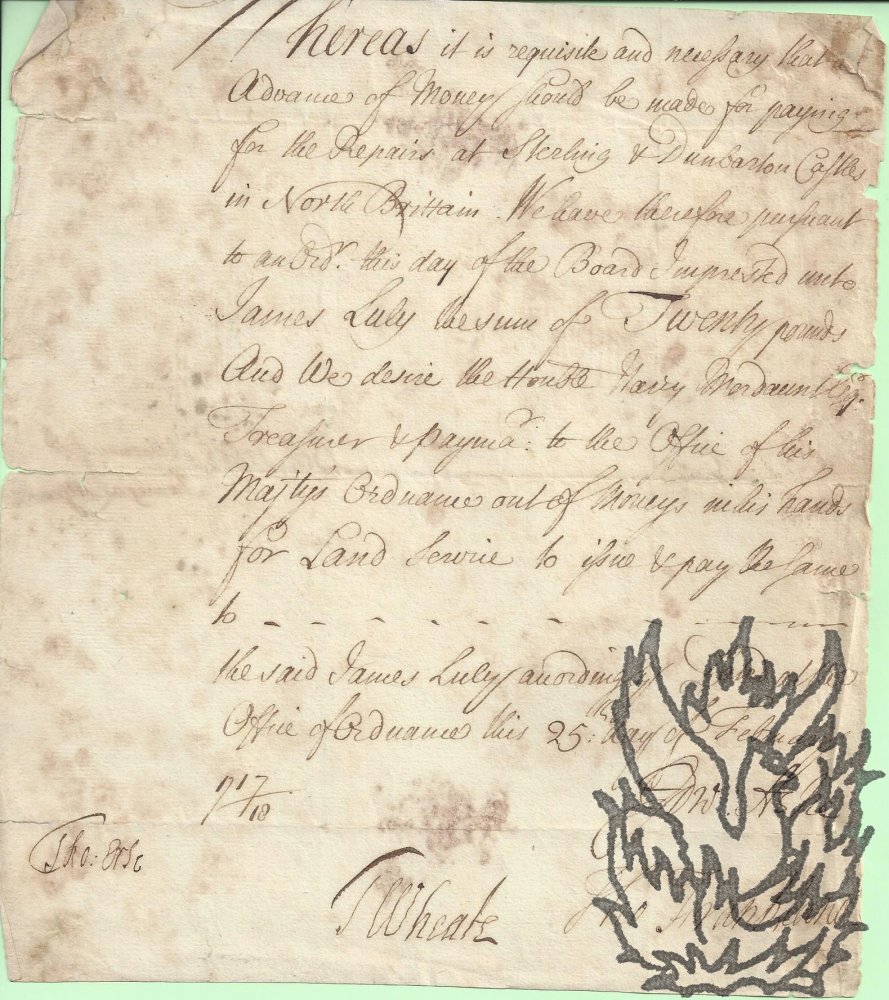 Whereas it is requisite and necessary that
Advance of Money should be made for paying
for the Repairs at Sterling & Dunbarton Castles
in North Brittain. We have therefore pursuant
to an Ordr. this day of the Board Imprested unto
James Luly the sum of Twenty pounds
And We desire the Honble Harry Mordaunt Esqr.
Treasurer & Paymr. to the Office of his
Majtys Ordnance out of Moneys in his hands
for Land Service to issue & pay the same
to - - - - - - - -
the said James Luly accordingly
Office of Ordnance this 25: day of February
1717/18
Edw.
Tho:
TWheate